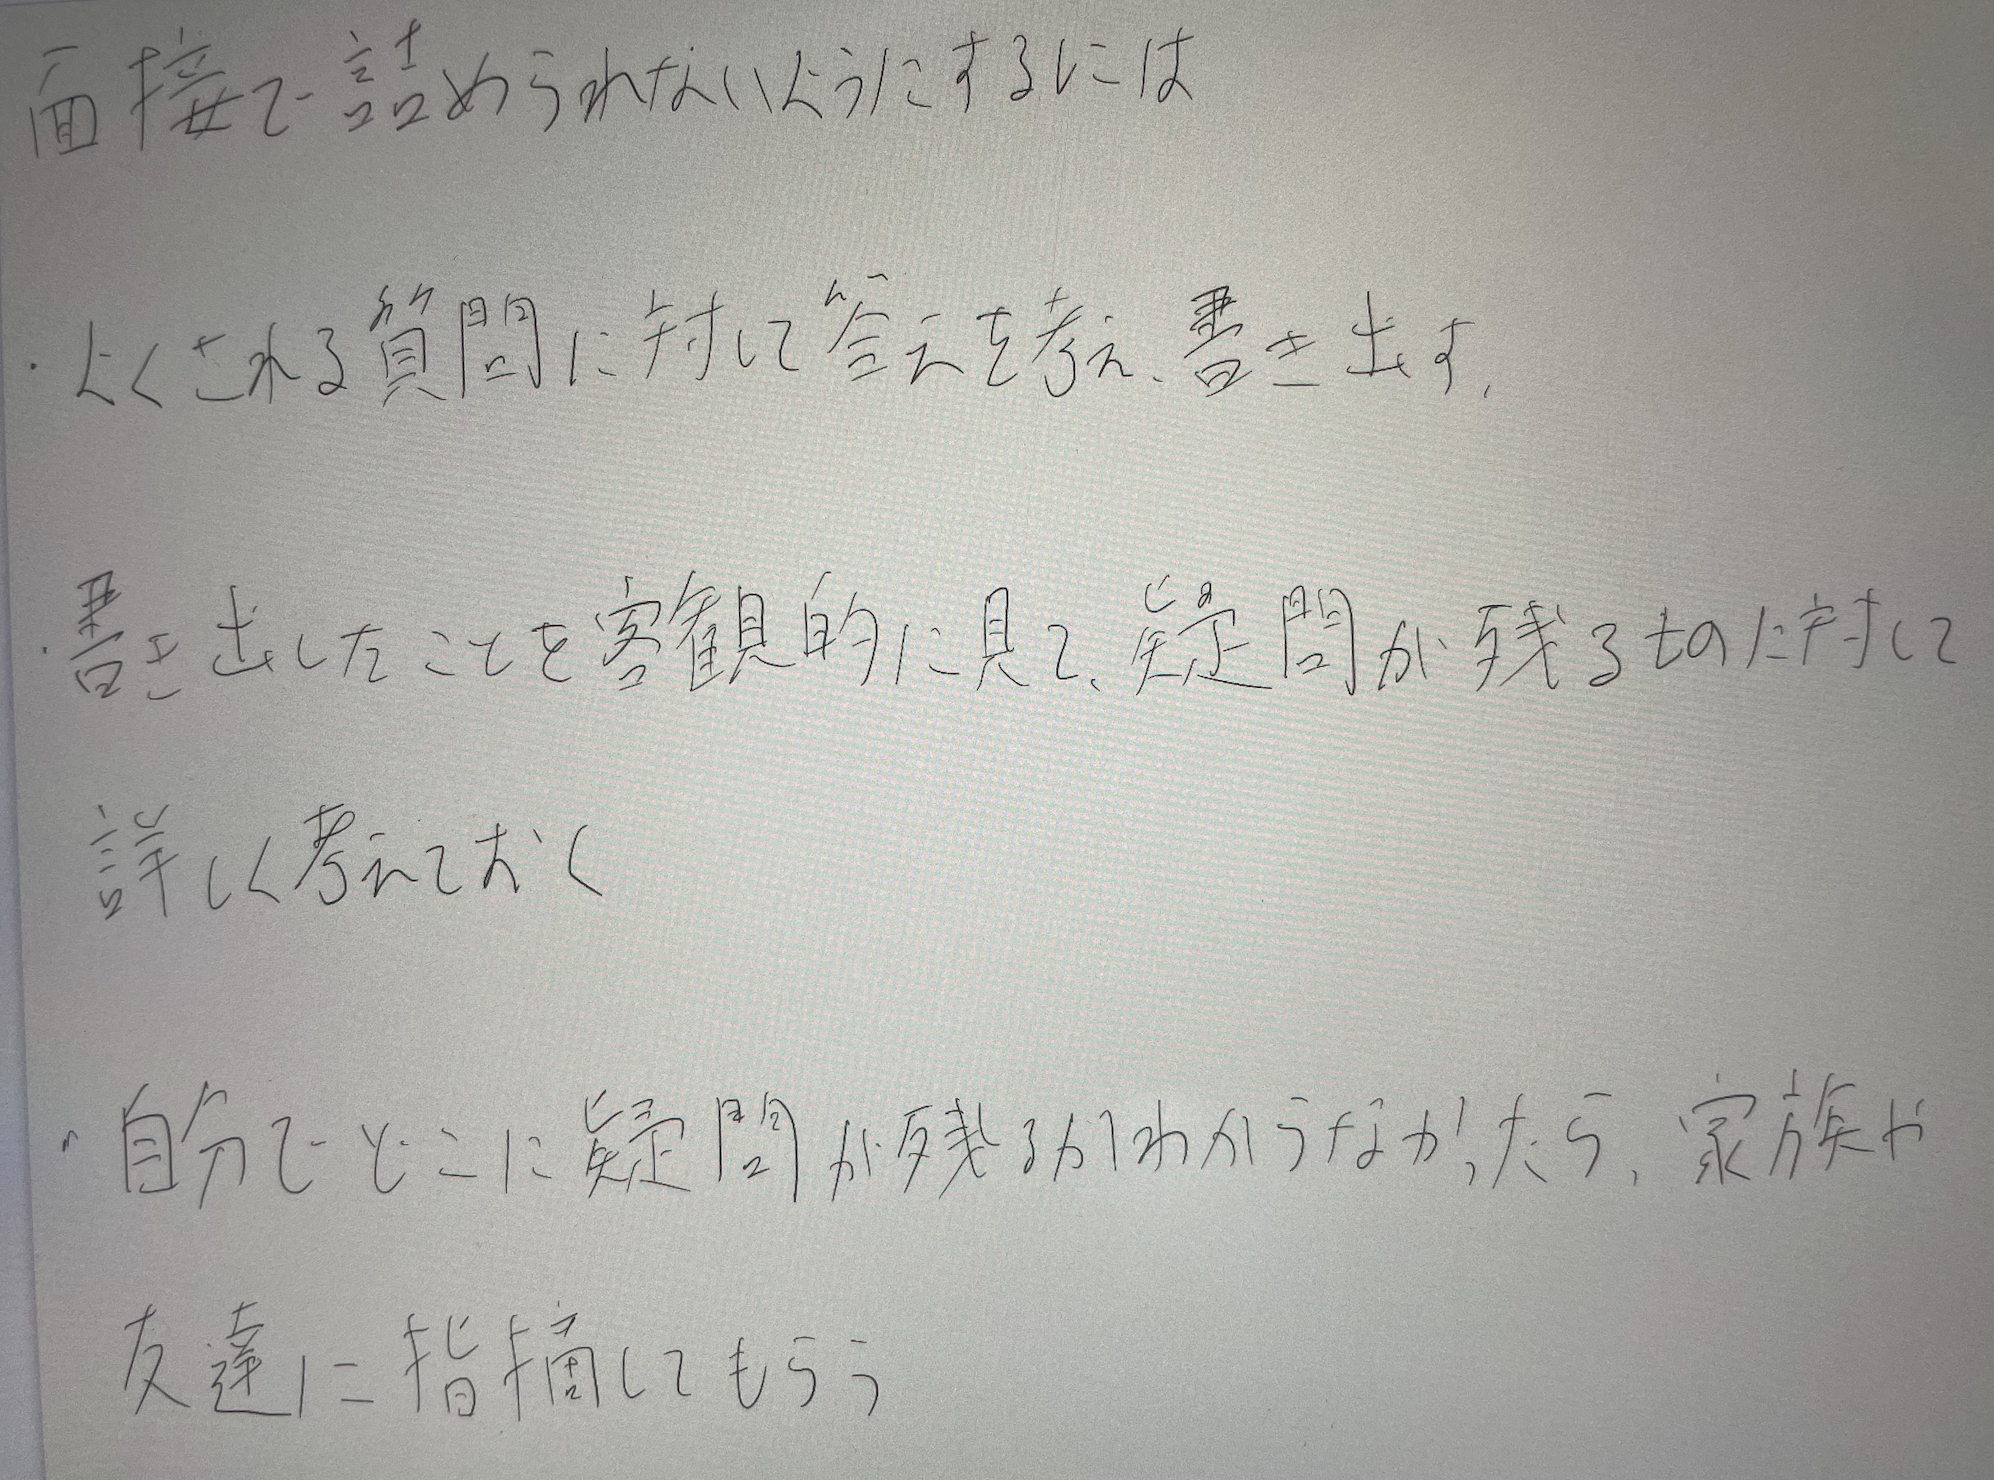 面接で詰められないようにするには
・よくされる質問に対して答えを考え、書き出す。
・書き出したことを客観的に見て、疑問が残るものに対して
詳しく考えておく
・自分でどこに疑問が残るかわからなかったら、家族や
友達に指摘してもらう